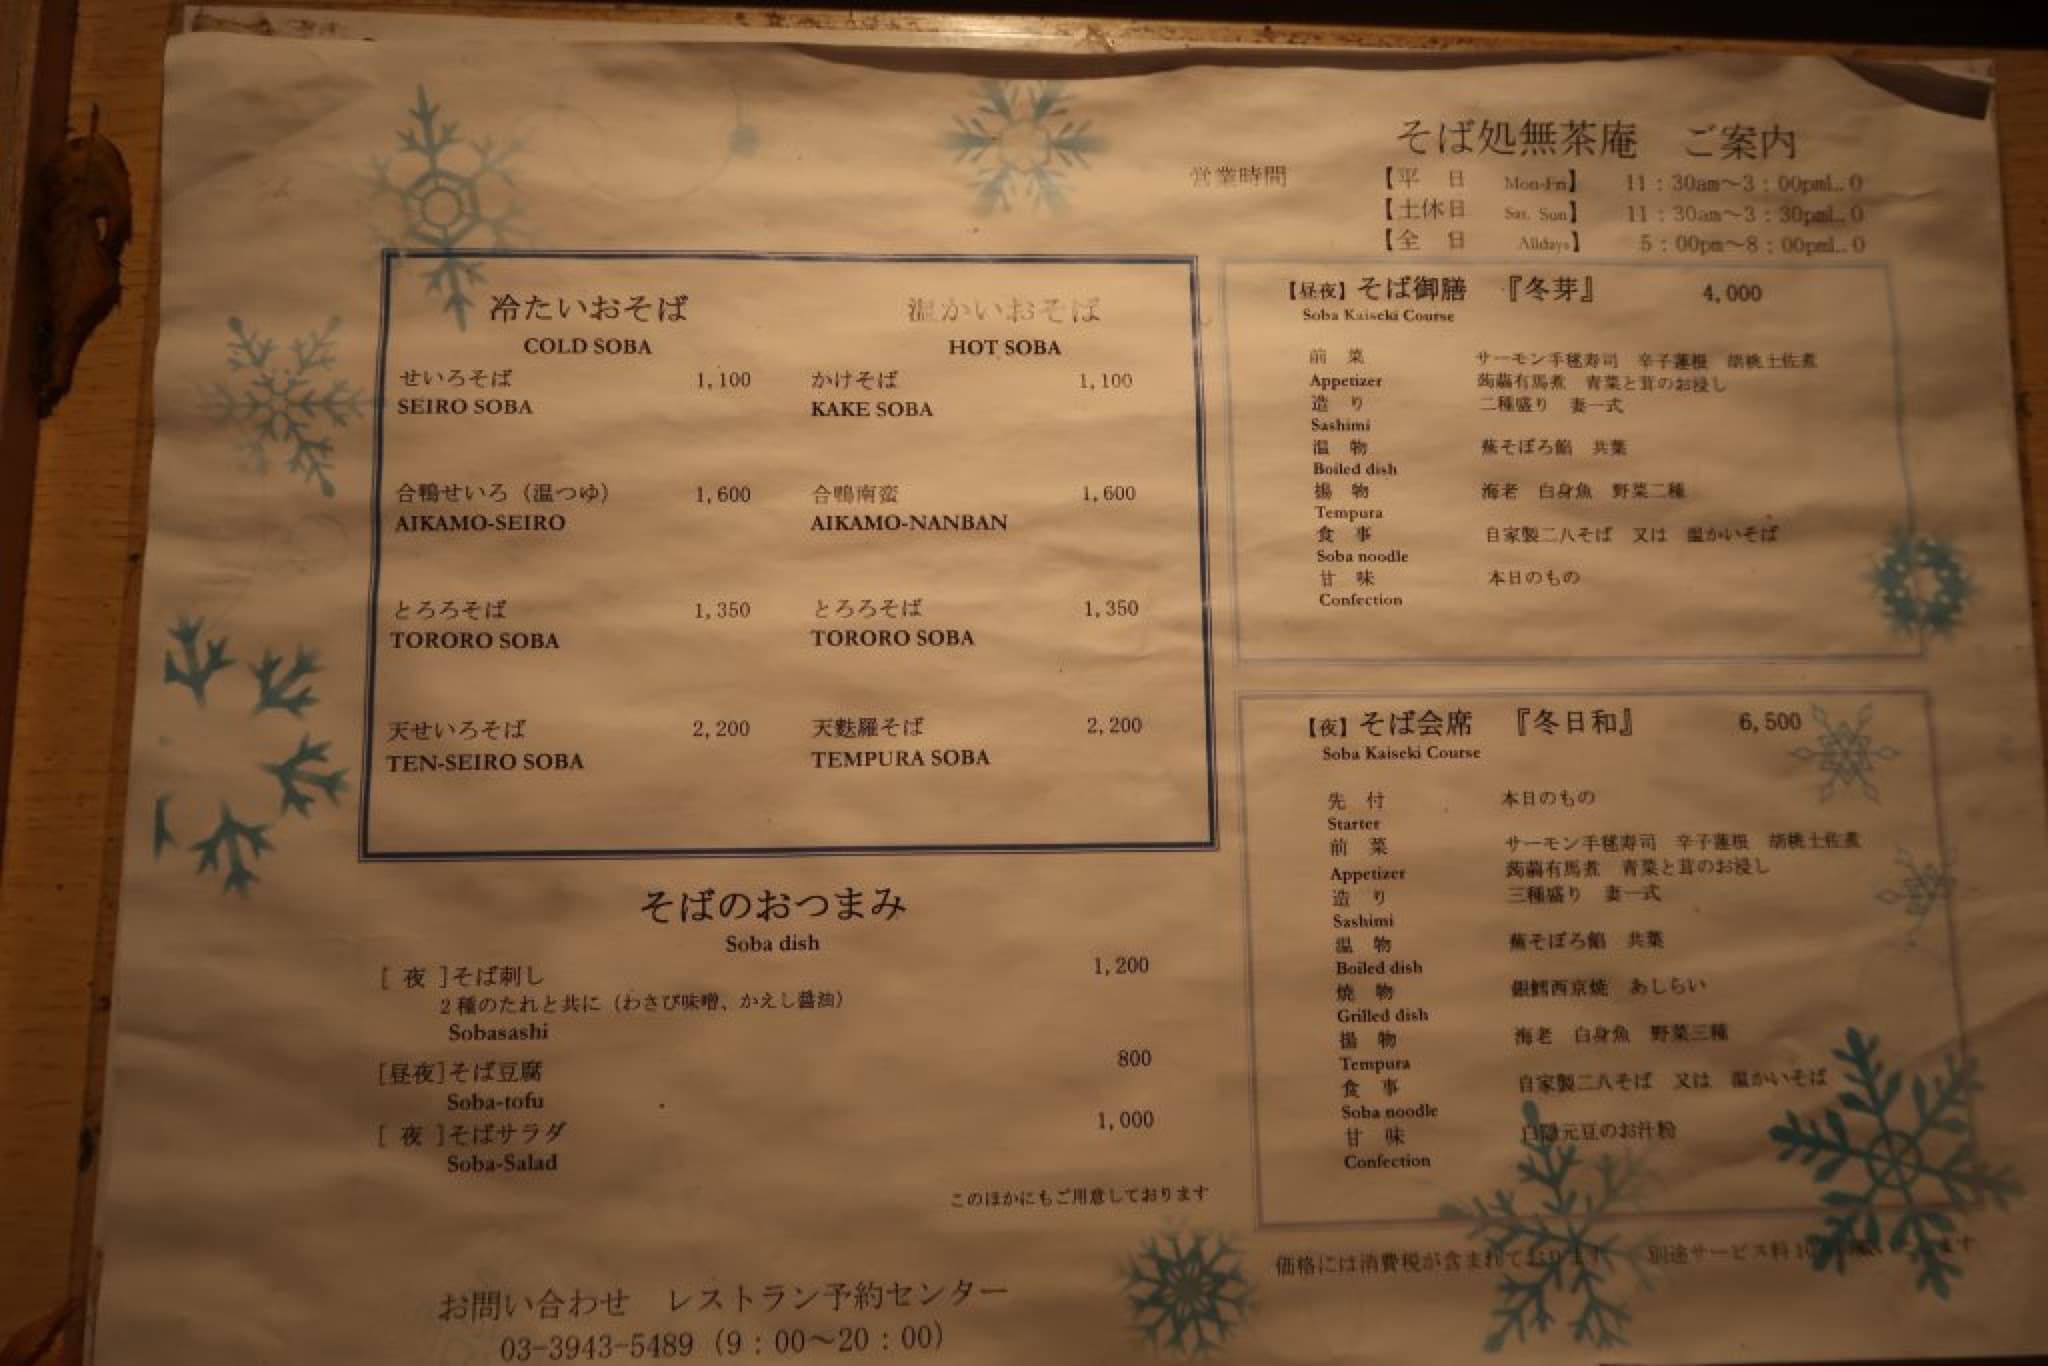 そば処無茶庵　ご案内
営業時間　【平　日　Mon-Fri】　11：30am～3：00pmL.O
【土休日　Sat. Sun】　11：30am～3：30pmL.O
【全　日　Alldays】　5：00pm～8：00pmL.O
冷たいおそば
COLD SOBA
せいろそば　1,100
SEIRO SOBA
合鴨せいろ（温つゆ）　1,600
AIKAMO-SEIRO
とろろそば　1,350
TORORO SOBA
天せいろそば　2,200
TEN-SEIRO SOBA
温かいおそば
HOT SOBA
かけそば　1,100
KAKE SOBA
合鴨南蛮　1,600
AIKAMO-NANBAN
とろろそば　1,350
TORORO SOBA
天麩羅そば　2,200
TEMPURA SOBA
そばのおつまみ
Soba dish
[ 夜 ]そば刺し　1,200
2種のたれと共に（わさび味噌、かえし醤油）
Sobasashi
[昼夜]そば豆腐　800
Soba-tofu
[ 夜 ]そばサラダ　1,000
Soba-Salad
このほかにもご用意しております
お問い合わせ　レストラン予約センター
03-3943-5489（9：00～20：00）
【昼夜】そば御膳　『冬芽』　4,000
Soba Kaiseki Course
前　菜　サーモン手毬寿司　辛子蓮根　胡桃土佐煮
Appetizer　蒟蒻有馬煮　青菜と茸のお浸し
造　り　二種盛り　妻一式
Sashimi
温　物　蕪そぼろ餡　共葉
Boiled dish
揚　物　海老　白身魚　野菜二種
Tempura
食　事　自家製二八そば　又は　温かいそば
Soba noodle
甘　味　本日のもの
Confection
【夜】そば会席　『冬日和』　6,500
Soba Kaiseki Course
先　付　本日のもの
Starter
前　菜　サーモン手毬寿司　辛子蓮根　胡桃土佐煮
Appetizer　蒟蒻有馬煮　青菜と茸のお浸し
造　り　三種盛り　妻一式
Sashimi
温　物　蕪そぼろ餡　共葉
Boiled dish
焼　物　銀鱈西京焼　あしらい
Grilled dish
揚　物　海老　白身魚　野菜三種
Tempura
食　事　自家製二八そば　又は　温かいそば
Soba noodle
甘　味　白隠元豆のお汁粉
Confection
価格には消費税が含まれております　別途サービス料